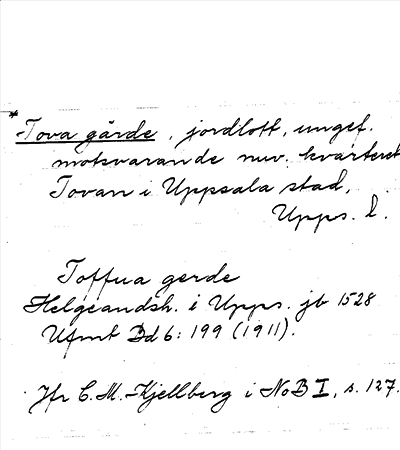 *Tova gärde, jordlott, ungef.
motsvarande nuv. kvarteret
Tovan i Uppsala stad,
Upps. l.
Toffua gerde
Helgeandsh. i Upps. jb 1528
Ufmt Dd 6: 199 (1911).
Jfr C. M. Kjellberg i NoB I, s. 127.